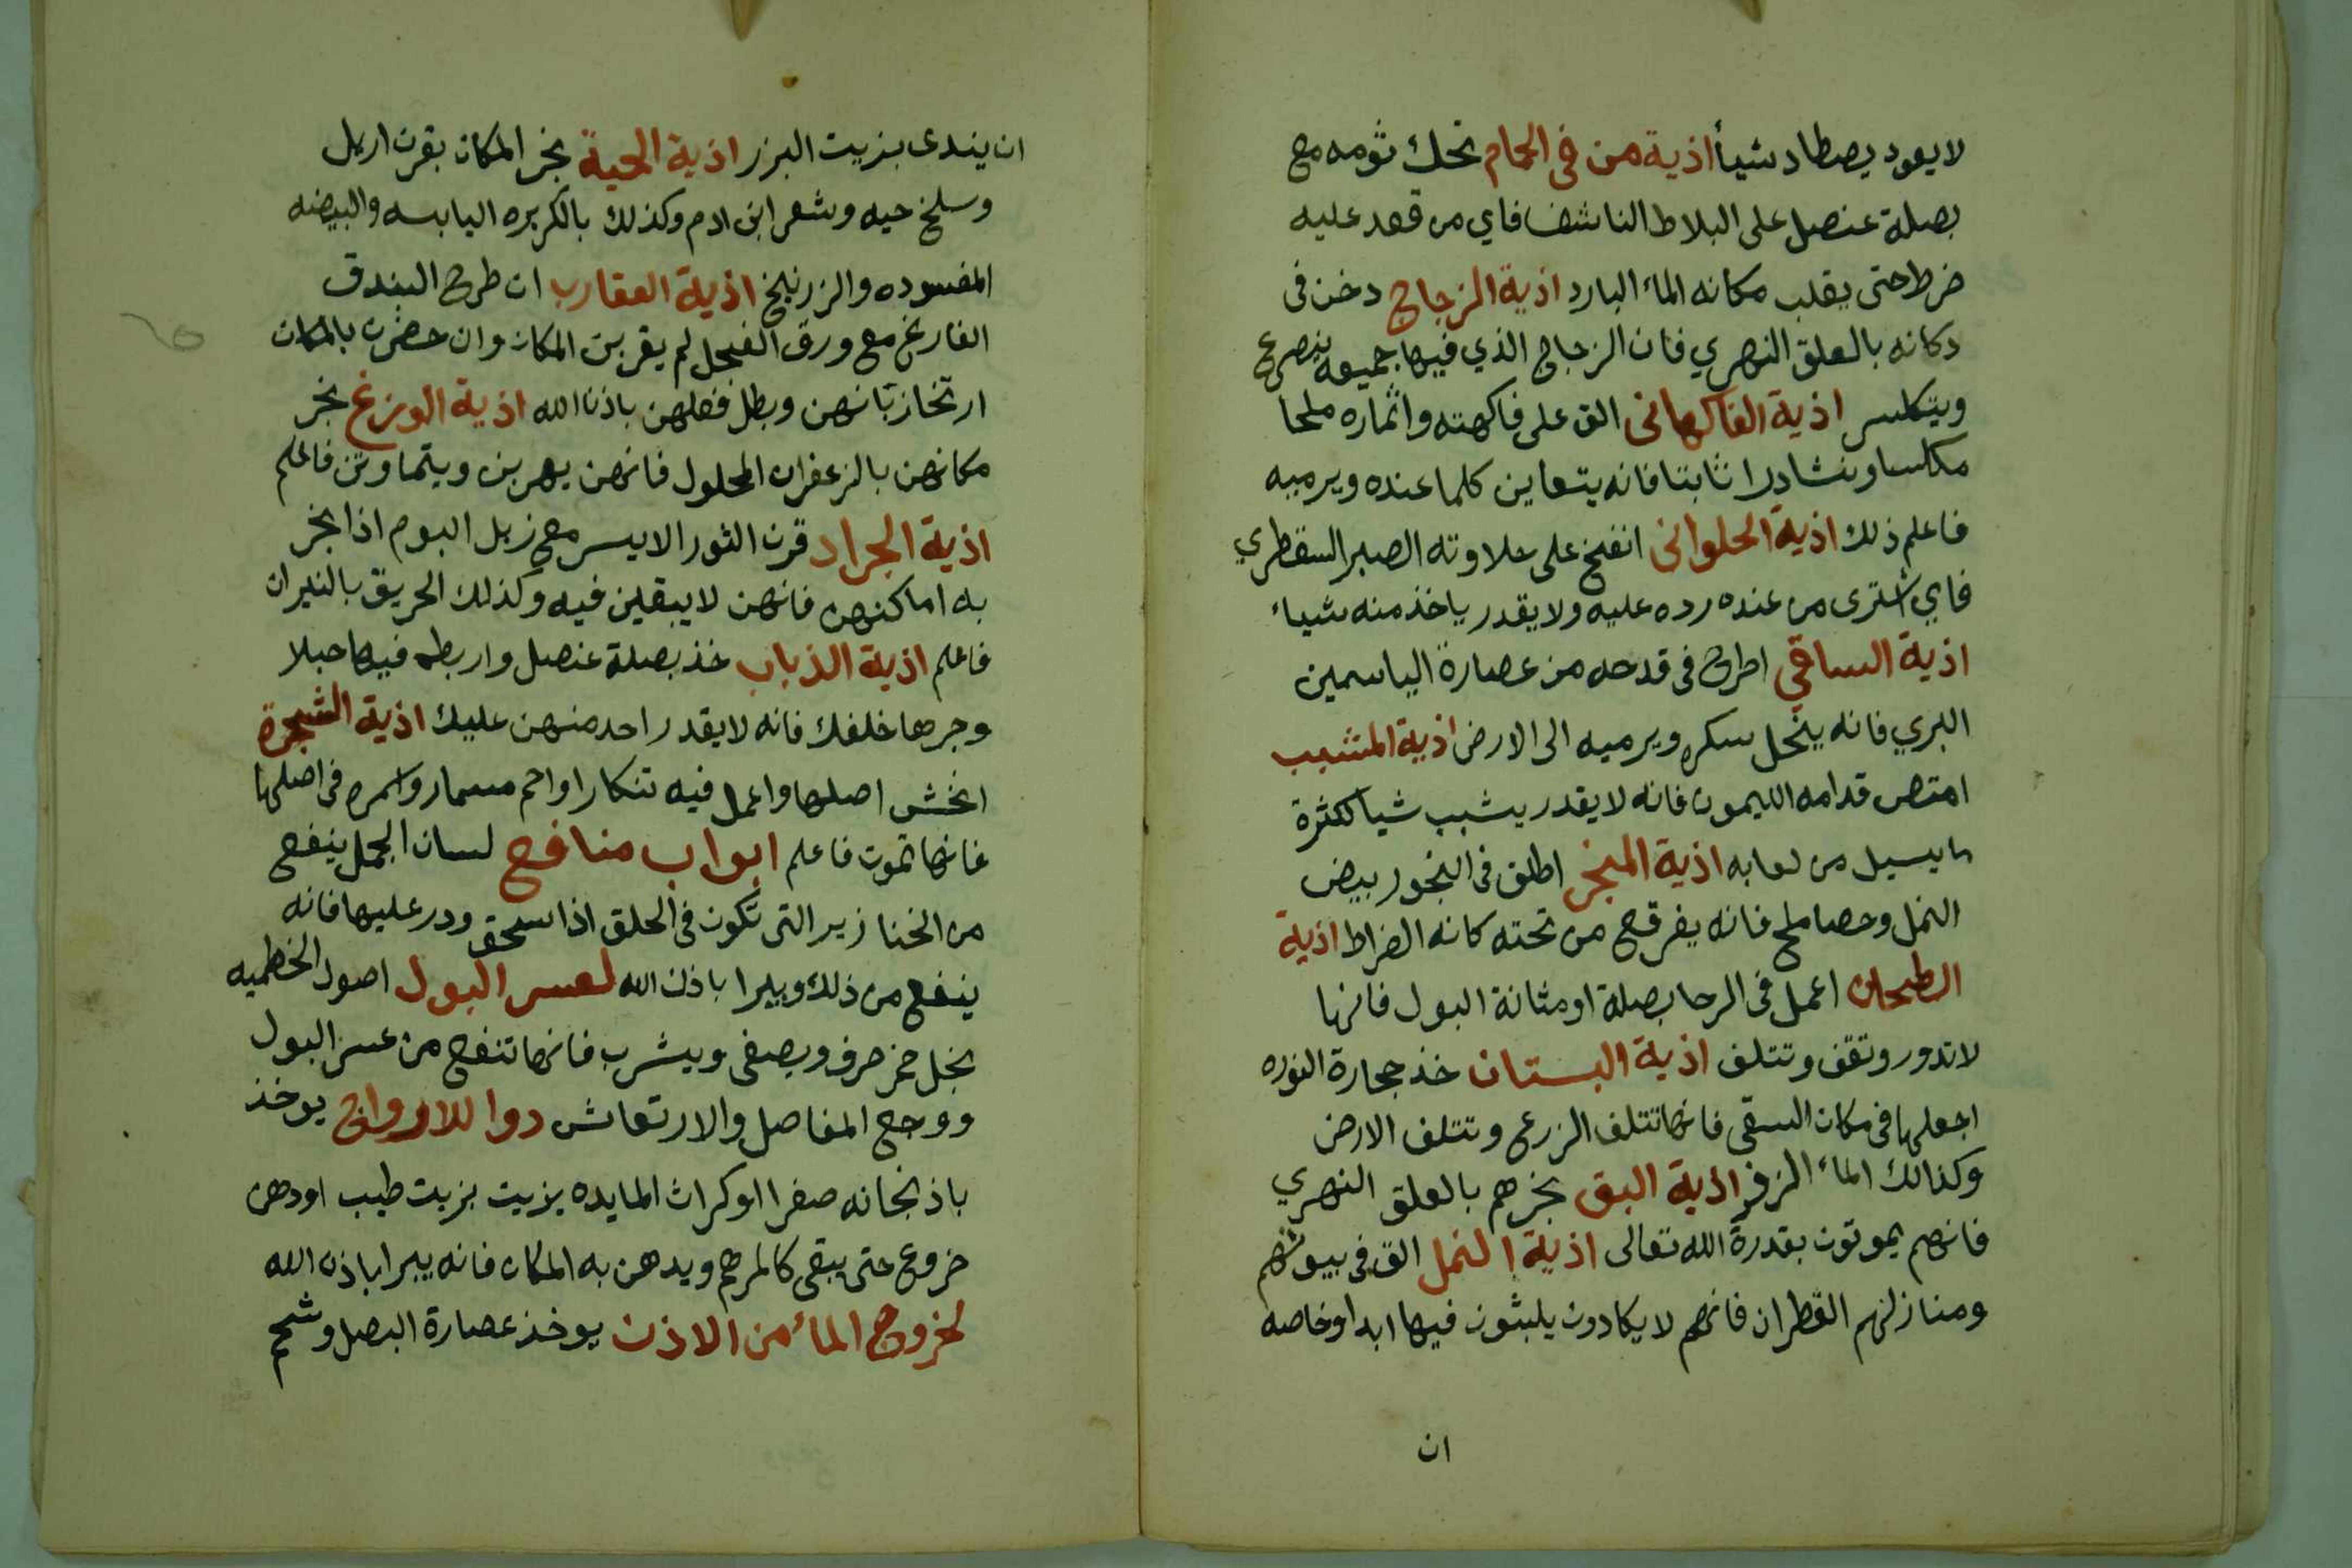 لا يعود يصطاد شيأ اذية من فى الحمام تحك ثومه مع
بصلة عنصل على البلاط الناشف فاي من قعد عليه
ضرط حتى يقلب مكانه الماء البارد اذية الزجاج دخن فى
دكانه بالعلق النهري فان الزجاج الذي فيها جميعه ينصرع
ويتكلس اذية الفاكهانى الق على فاكهته واثماره ملحا
مكلسا ونشادرا ثابتا فانه يتعاين كلما عنده ويرميه
فاعلم ذلك اذية الحلوانى انفخ على حلاوته الصبر السقطري
فاي اشترى من عنده رده عليه ولا يقدر ياخذ منه شياء
اذية الساقي اطرح فى قدحه من عصارة الياسمين
البري فانه ينحل سكره ويرميه الى الارض اذية المشبب
امتص قدامه الليمون فانه لا يقدر يشبب شيا لكثرة
ما يسيل من لعابه اذية المبخر اطلق فى البخور بيض
النمل وحصا ملح فانه يفرقع من تحته كانه الضراط اذية
الطحان اعمل فى الرحا بصلة او مثانة البول فانها
لا تدور وتقف وتتلف اذية البستان خذ حجارة النوره
اجعلها فى مكان السقى فانها تتلف الزرع وتتلف الارض
وكذالك الماء الزفر اذية البق بخرهم بالعلق النهري
فانهم يموتون بقدرة الله تعالى اذية النمل الق فى بيوتهم
ومنازلهم القطران فانهم لا يكادون يلبثون فيها ابدا وخاصه
ان
ان يندى بزيت البزر اذية الحية بخر المكان بقرن اريل
وسلخ حيه وشعر ابن ادم وكذلك بالكزبره اليابسه والبيضه
المفسوده والزرنيخ اذية العقارب ان طرح البندق
الفارغ مع ورق الفجل لم يقربن المكان وان حضرن بالمكان
ارتخا زبانهن وبطل فعلهن باذن الله اذية الوزغ بخر
مكانهن بالزعفران المحلول فانهن يهربن ويتماوتن فاعلم
اذية الجراد قرن الثور الايسر مع زبل البوم اذا بخر
به اماكنهن فانهن لا يبقلين فيه وكذلك الحريق بالنيران
فاعلم اذية الذباب خذ بصلة عنصل واربطه فيها حبلا
وجرها خلفك فانه لا يقدر احد منهن عليك اذية الشجرة
انخش اصلها واعمل فيه تنكارا واحم مسمار واسمره فى اصلها
فانها تموت فاعلم ابواب منافع لسان الجمل ينفع
من الخنازير التى تكون فى الحلق اذا سحق ودر عليها فانه
ينفع من ذلك ويبرا باذن الله لعسر البول اصول الخطميه
بخل خمر صرف ويصفى ويشرب فانها تنفع من عسر البول
ووجع المفاصل والارتعاش دوا للارواح يوخذ
باذنجانه صفرا او كراث المايده بزيت بزيت طيب او دهن
خروع حتى يبقى كالمرهم ويدهن به المكان فانه يبرا باذن الله
لخروج الماء من الاذن يوخذ عصارة البصل وشحم